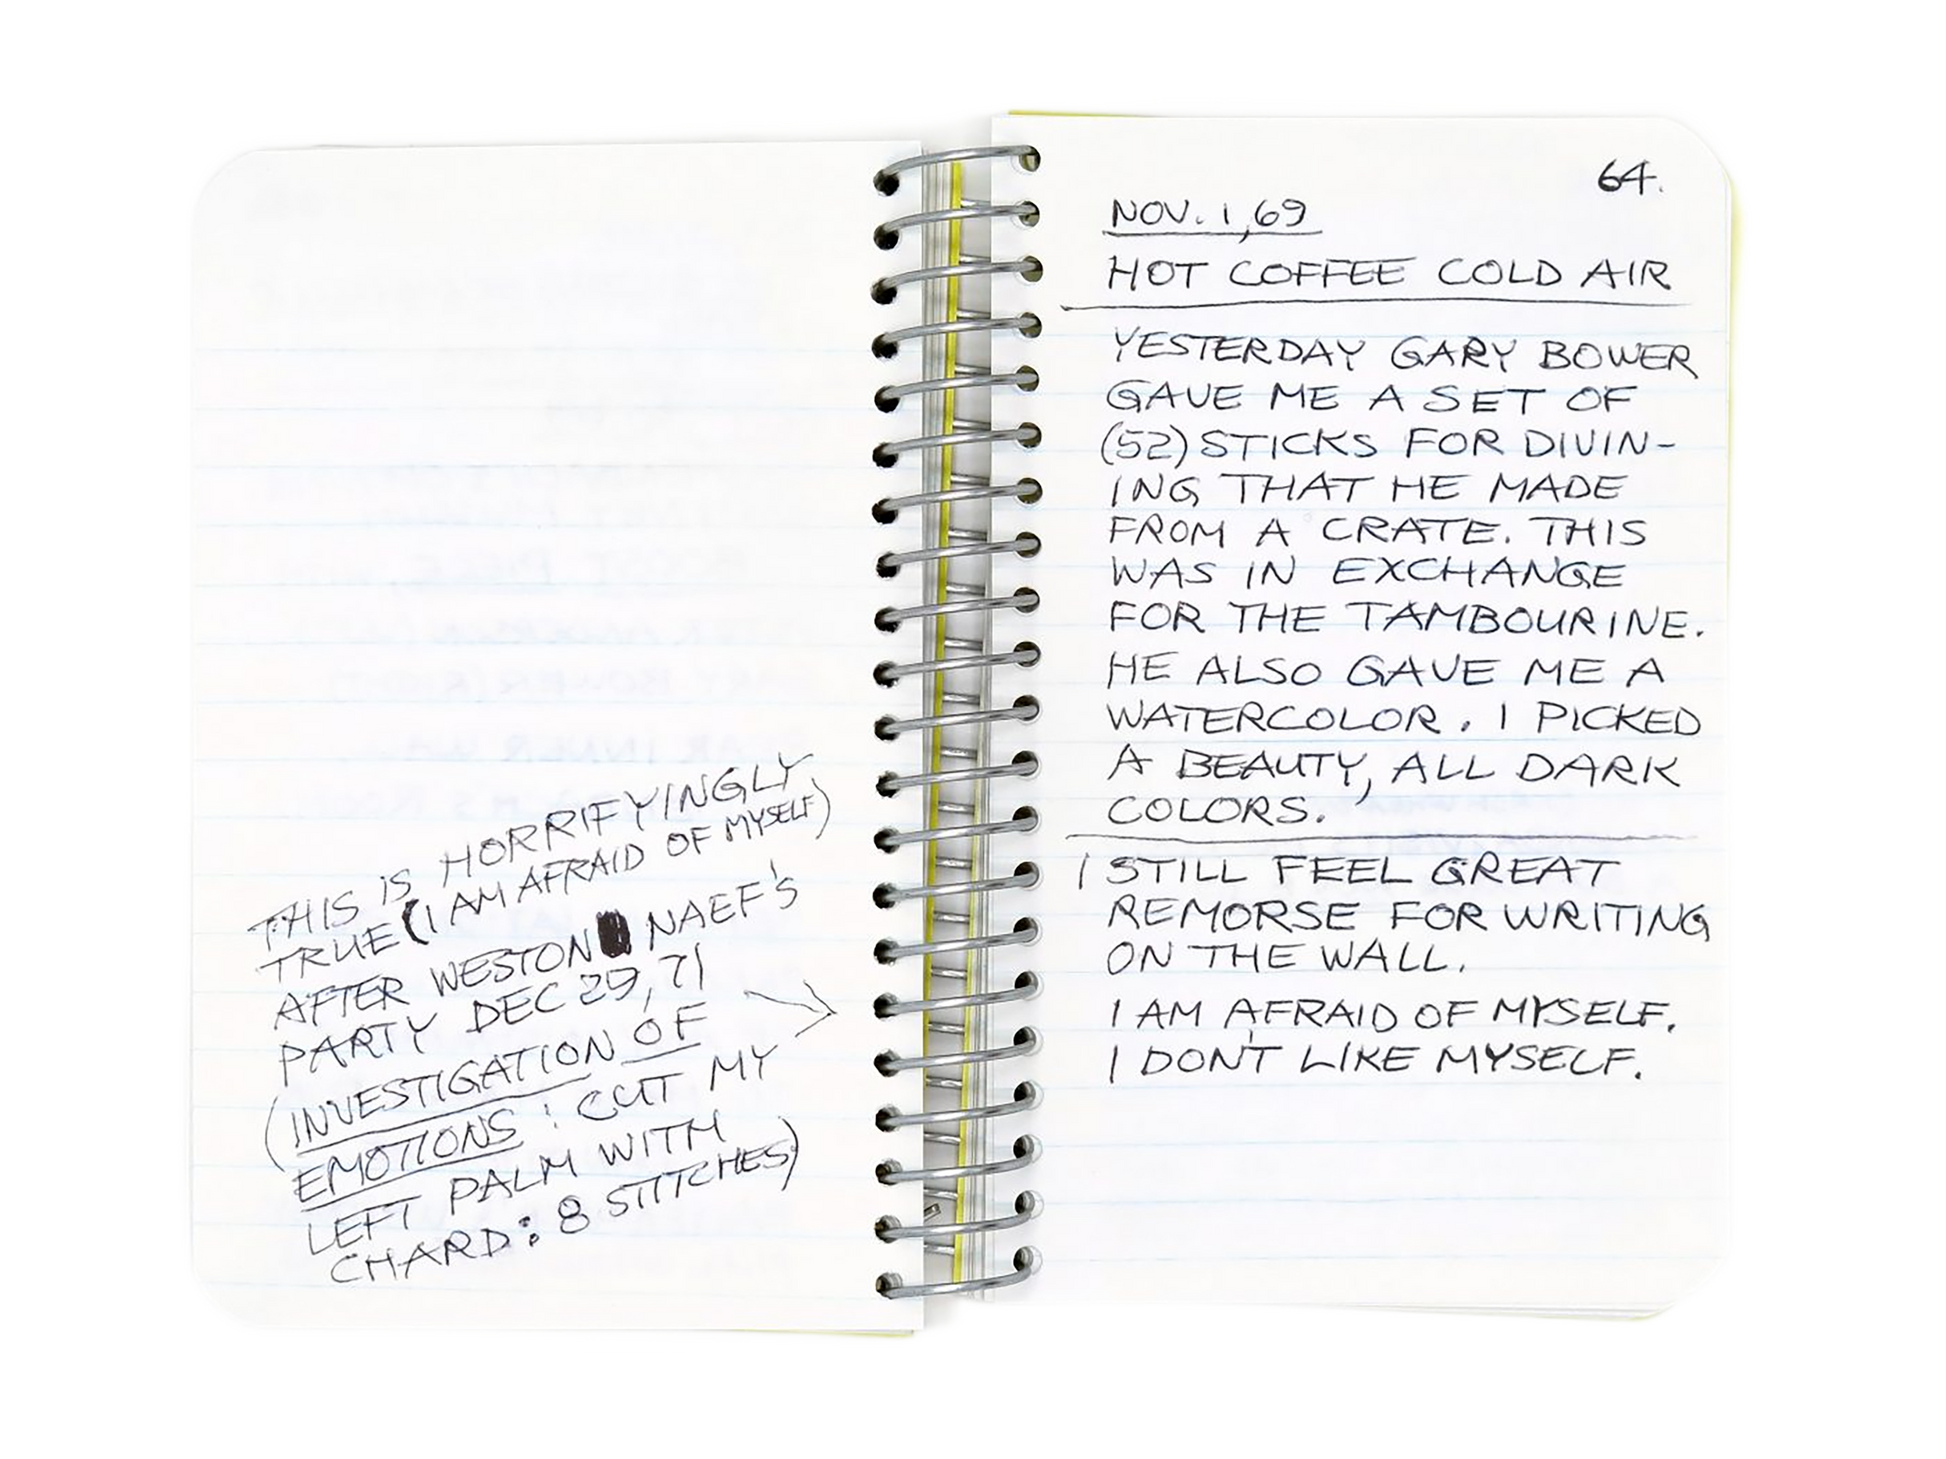 THIS IS HORRIFYINGLY
TRUE (I AM AFRAID OF MYSELF)
AFTER WESTON NAEF'S
PARTY DEC 29, 71
(INVESTIGATION OF
EMOTIONS : CUT MY
LEFT PALM WITH
CHARD: 8 STITCHES)
64.
NOV. 1, 69
HOT COFFEE COLD AIR
YESTERDAY GARY BOWER
GAVE ME A SET OF
(52) STICKS FOR DIVIN-
ING THAT HE MADE
FROM A CRATE. THIS
WAS IN EXCHANGE
FOR THE TAMBOURINE.
HE ALSO GAVE ME A
WATERCOLOR. I PICKED
A BEAUTY, ALL DARK
COLORS.
I STILL FEEL GREAT
REMORSE FOR WRITING
ON THE WALL.
I AM AFRAID OF MYSELF.
I DON'T LIKE MYSELF.